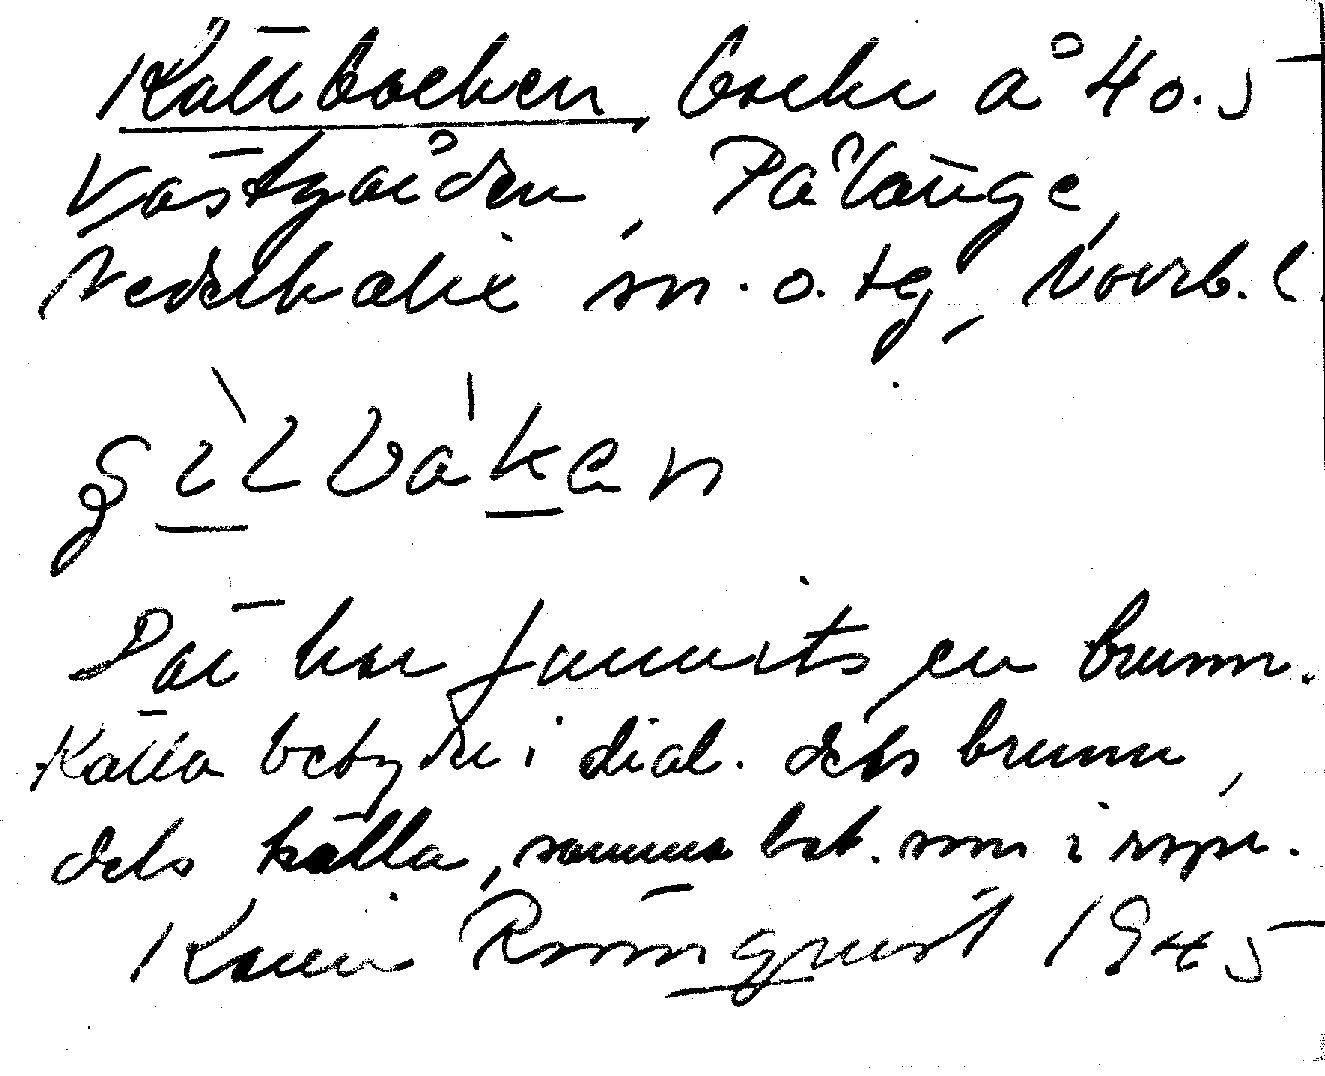 Källbacken, backe å 40.5
Västgården, Pålänge,
Nederkalix sn. o. tg, Norrb. l.
Där har funnits en brunn.
Källa betyder i dial. dels brunn,
dels källa, samma bet. som i rspr.
Karin Rönnqvist 1945